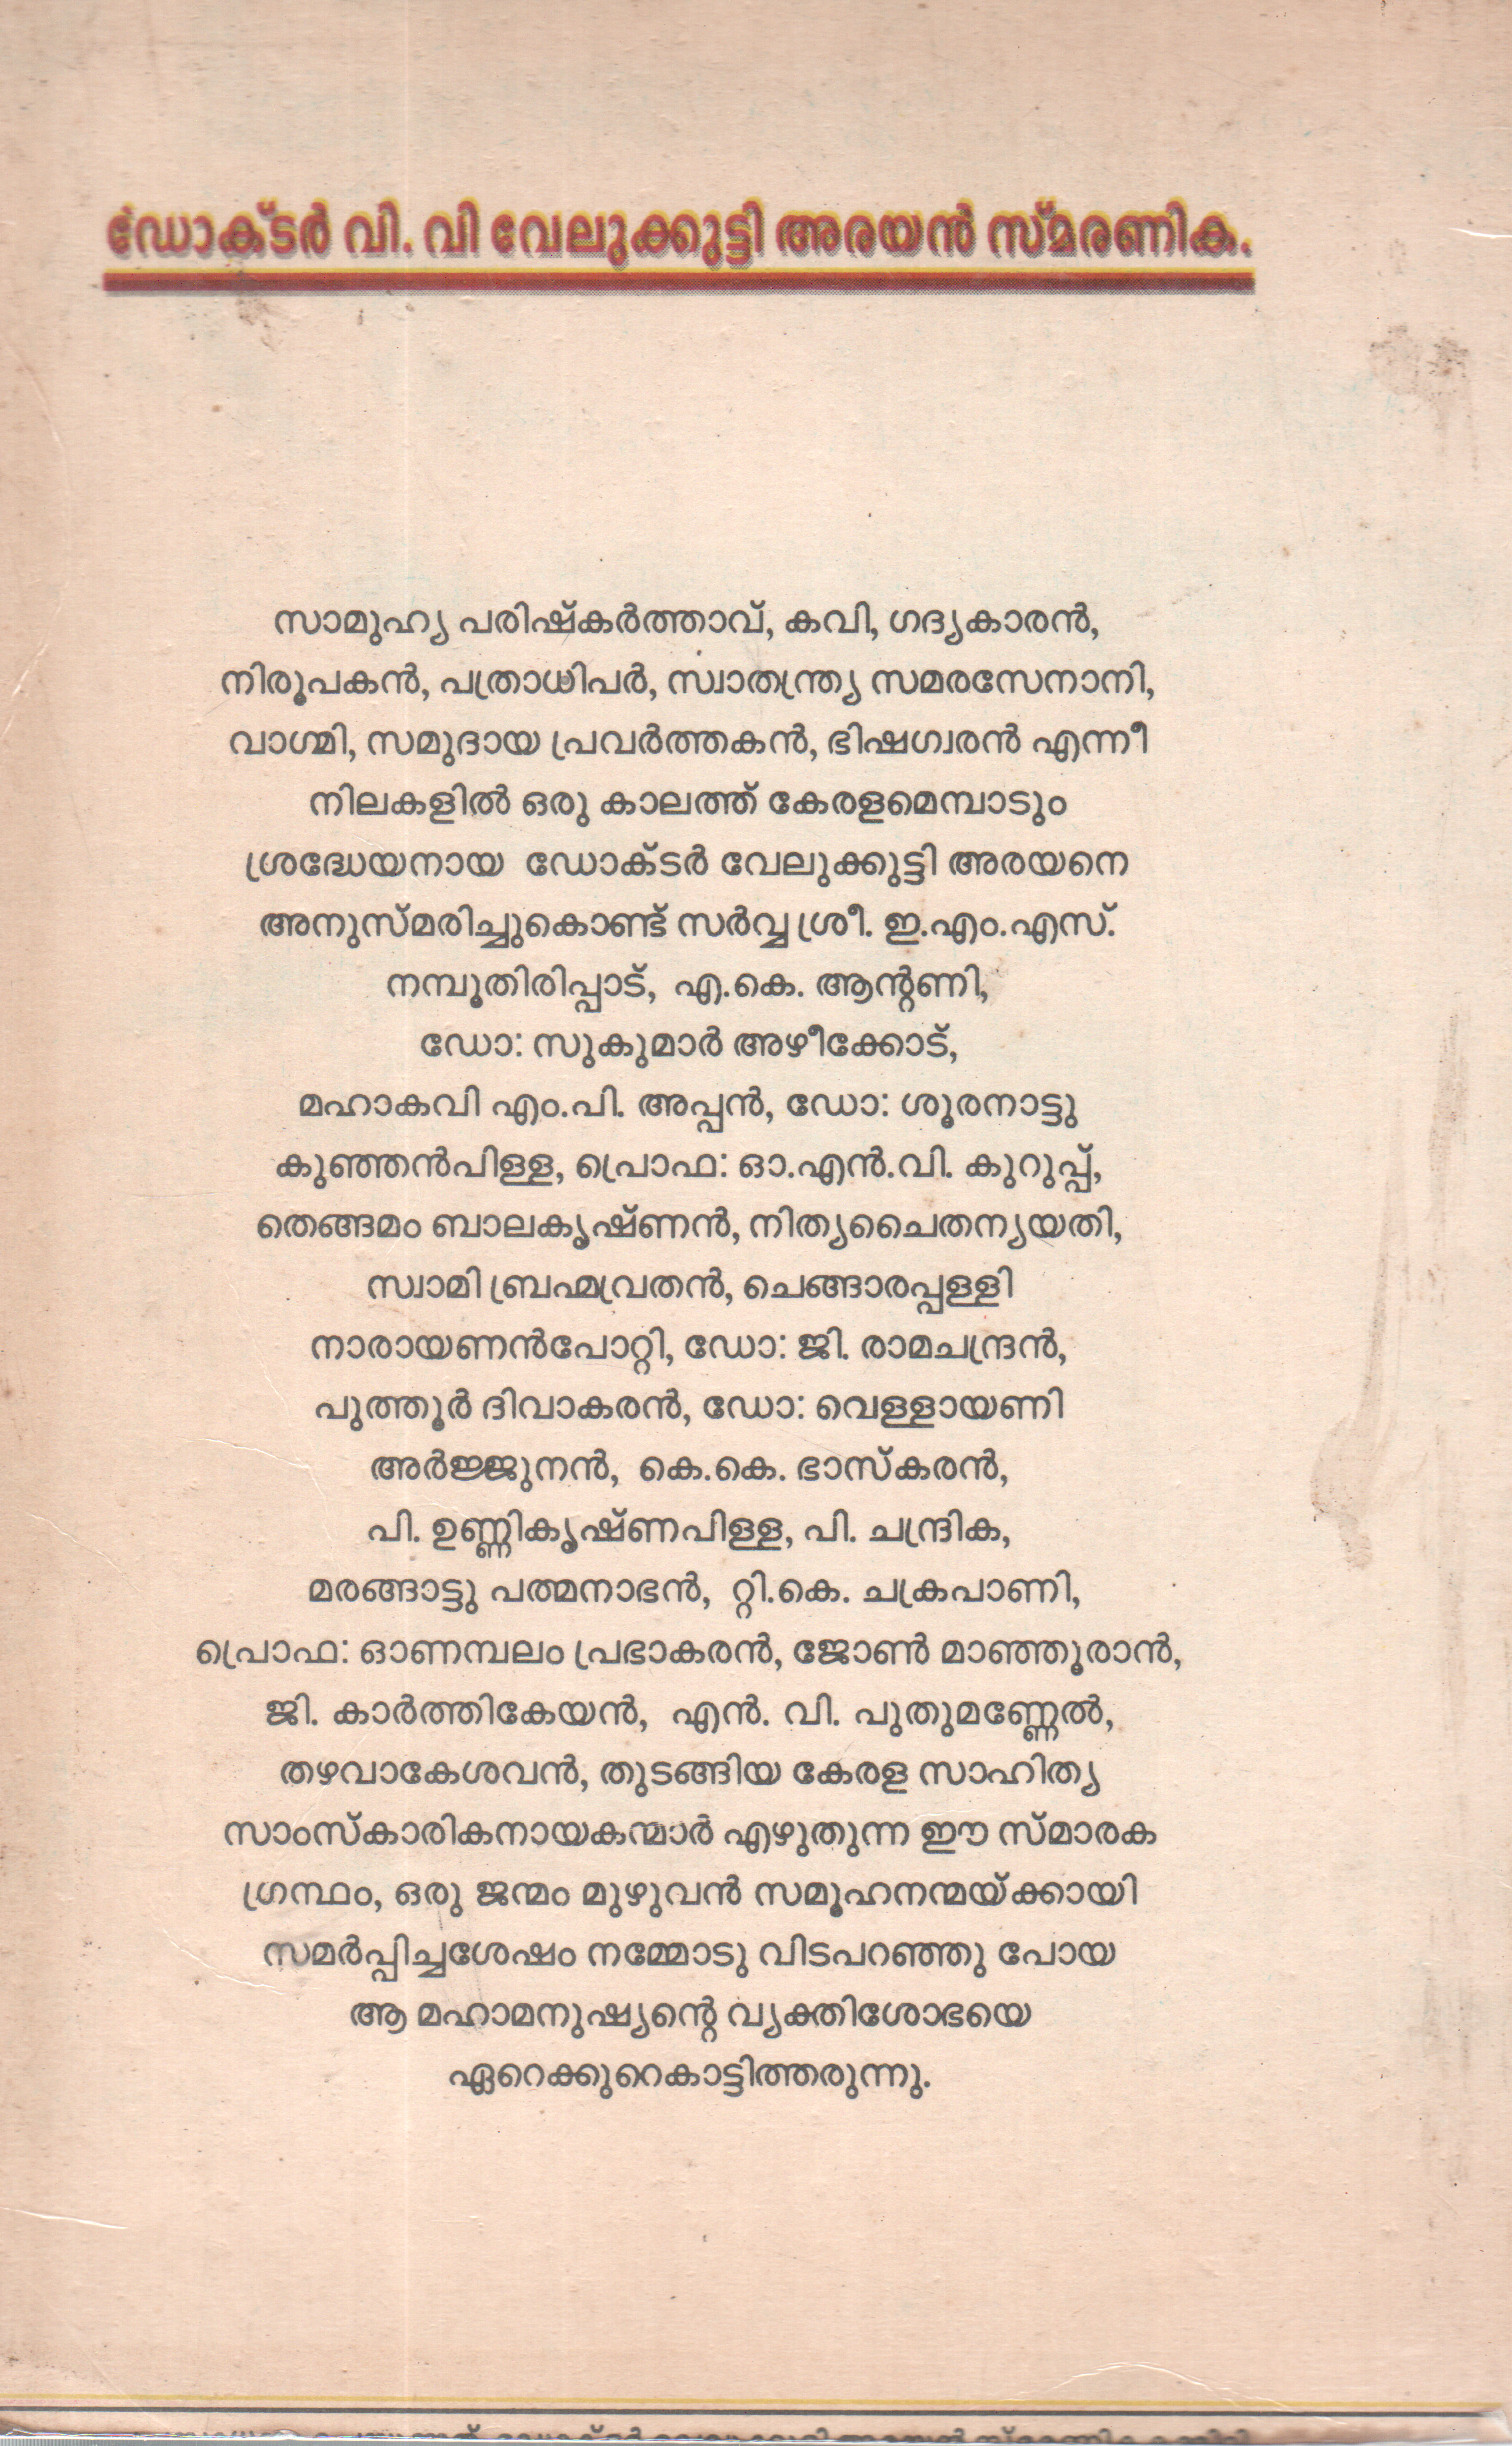 ഡോക്ടർ വി. വി വേലുക്കുട്ടി അരയൻ സ്മരണിക.
സാമുഹ്യ പരിഷ്കർത്താവ്, കവി, ഗദ്യകാരൻ,
നിരൂപകൻ, പത്രാധിപർ, സ്വാതന്ത്ര്യ സമരസേനാനി,
വാഗ്മി, സമുദായ പ്രവർത്തകൻ, ഭിഷഗ്വരൻ എന്നീ
നിലകളിൽ ഒരു കാലത്ത് കേരളമെമ്പാടും
ശ്രദ്ധേയനായ ഡോക്ടർ വേലുക്കുട്ടി അരയനെ
അനുസ്മരിച്ചുകൊണ്ട് സർവ്വ ശ്രീ. ഇ.എം.എസ്.
നമ്പൂതിരിപ്പാട്, എ.കെ. ആന്റണി,
ഡോ: സുകുമാർ അഴീക്കോട്,
മഹാകവി എം.പി. അപ്പൻ, ഡോ: ശൂരനാട്ടു
കുഞ്ഞൻപിള്ള, പ്രൊഫ: ഓ.എൻ.വി. കുറുപ്പ്,
തെങ്ങമം ബാലകൃഷ്ണൻ, നിത്യചൈതന്യയതി,
സ്വാമി ബ്രഹ്മവ്രതൻ, ചെങ്ങാരപ്പള്ളി
നാരായണൻപോറ്റി, ഡോ: ജി. രാമചന്ദ്രൻ,
പുത്തൂർ ദിവാകരൻ, ഡോ: വെള്ളായണി
അർജ്ജുനൻ, കെ.കെ. ഭാസ്കരൻ,
പി. ഉണ്ണികൃഷ്ണപിള്ള, പി. ചന്ദ്രിക,
മരങ്ങാട്ടു പത്മനാഭൻ, റ്റി.കെ. ചക്രപാണി,
പ്രൊഫ: ഓണമ്പലം പ്രഭാകരൻ, ജോൺ മാഞ്ഞൂരാൻ,
ജി. കാർത്തികേയൻ, എൻ. വി. പുതുമണ്ണേൽ,
തഴവാകേശവൻ, തുടങ്ങിയ കേരള സാഹിത്യ
സാംസ്കാരികനായകന്മാർ എഴുതുന്ന ഈ സ്മാരക
ഗ്രന്ഥം, ഒരു ജന്മം മുഴുവൻ സമൂഹനന്മയ്ക്കായി
സമർപ്പിച്ചശേഷം നമ്മോടു വിടപറഞ്ഞു പോയ
ആ മഹാമനുഷ്യന്റെ വ്യക്തിശോഭയെ
ഏറെക്കുറെകാട്ടിത്തരുന്നു.